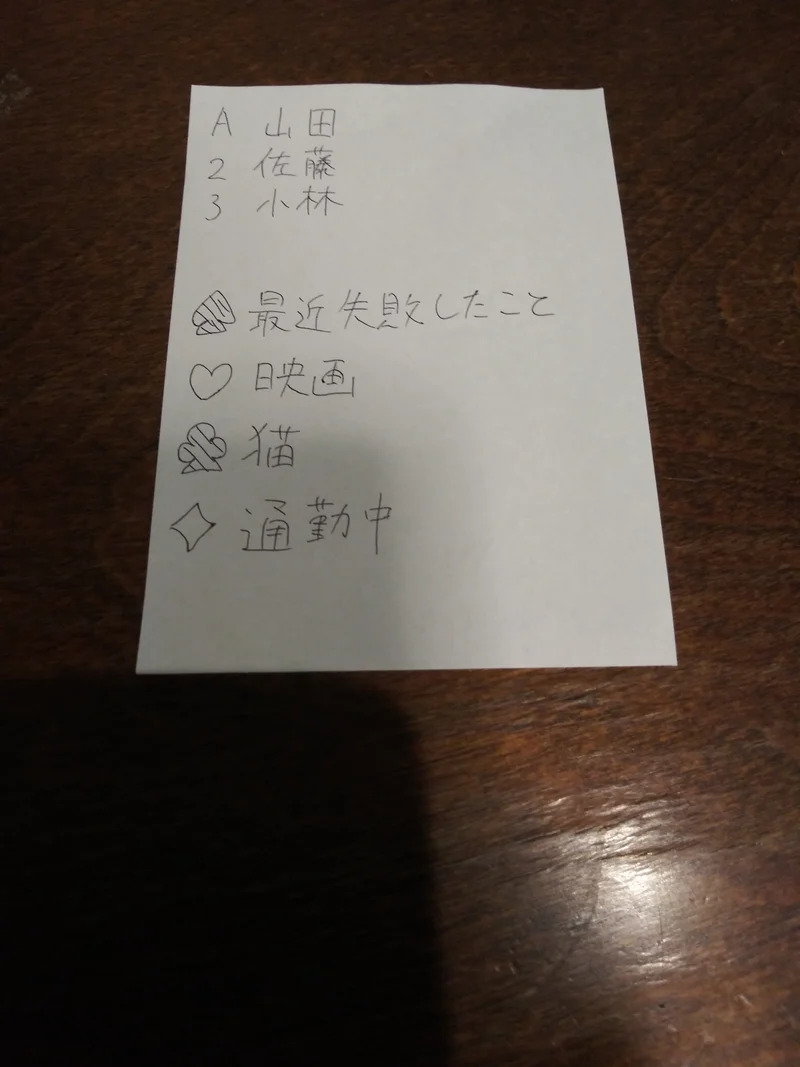 A 山田
2 佐藤
3 小林
♠ 最近失敗したこと
♡ 映画
♣ 猫
♢ 通勤中